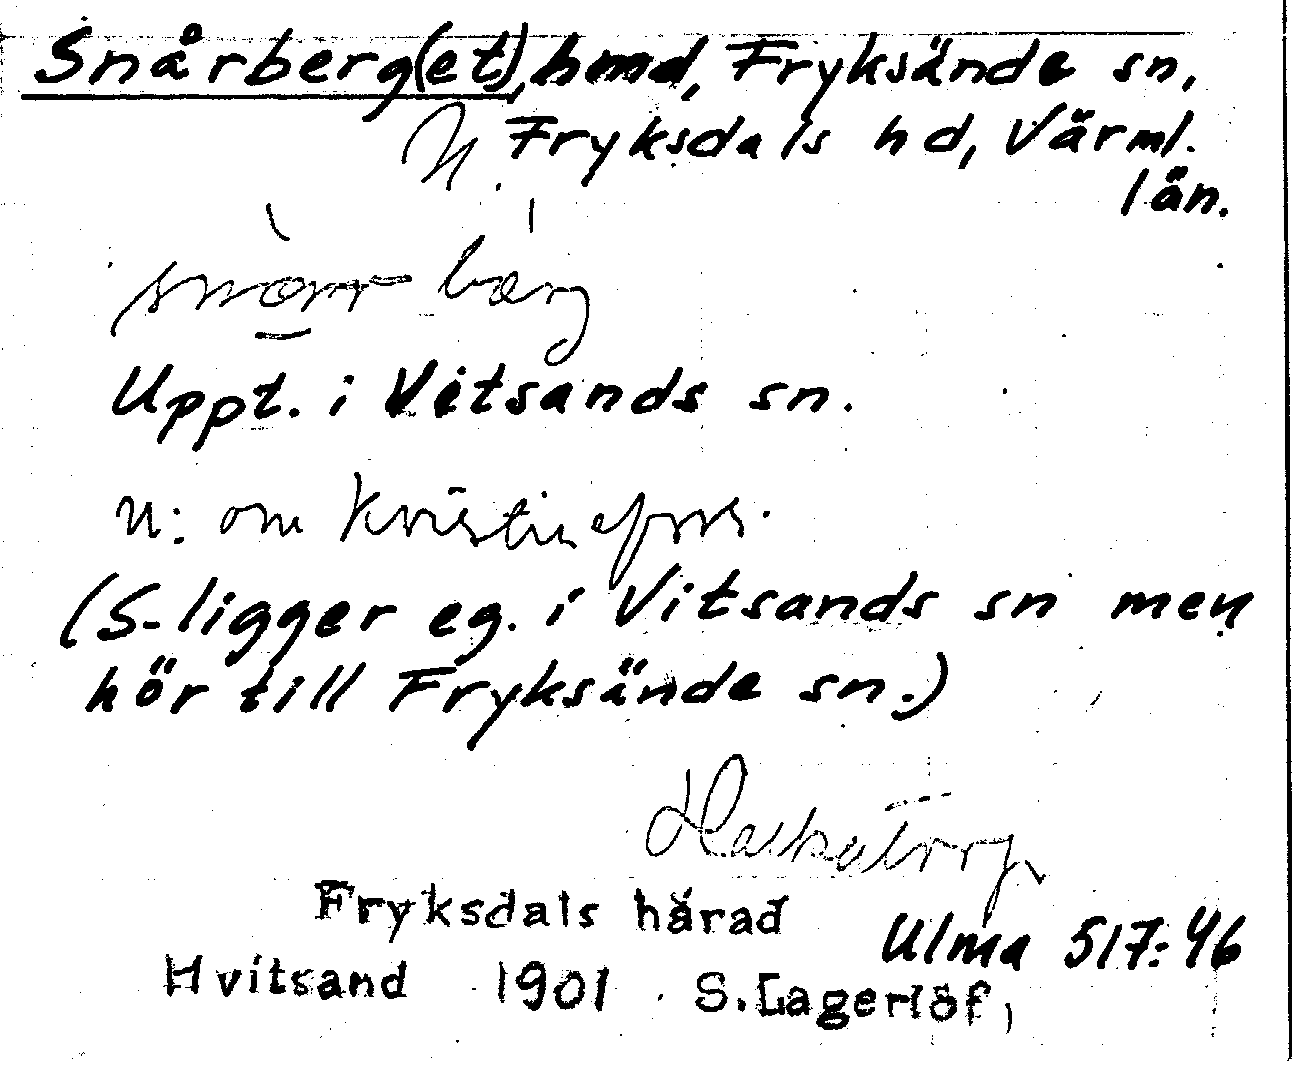 Snårberg(et), hmd, Fryksände sn,
N. Fryksdals hd, Värml.
län.
Uppt. i Vitsands sn.
N: om Kristinefors.
(S-ligger eg. i Vitsands sn men
hör till Fryksände sn.)
Fryksdals härad
Ulma 517:46
Hvitsand 1901 S. Lagerlöf,